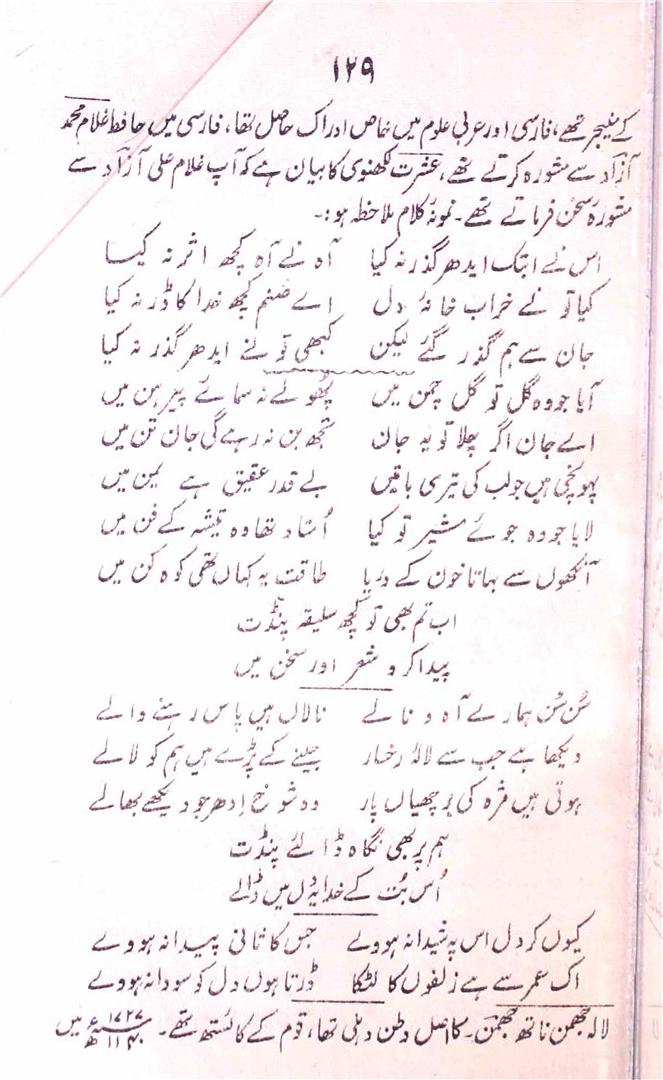 ۱۲۹
کے منیجر تھے، فارسی اور عربی علوم میں خاص ادراک حاصل تھا، فارسی میں حافظ غلام محمد
آزاد سے مشورہ کرتے تھے، عشرت لکھنوی کا بیان ہے کہ آپ غلام علی آزاد سے
مشورہ سخن فرماتے تھے۔ نمونۂ کلام ملاحظہ ہو:۔
اس نے ابتک ایدھر گذر نہ کیا آہ نے آہ کچھ اثر نہ کیا
کیا تو نے خراب خانۂ دل اے صنم کچھ خدا کا ڈر نہ کیا
جان سے ہم گذر گئے لیکن کبھی تو نے ایدھر گذر نہ کیا
آیا جو وہ گل تو گل چمن میں پھولے نہ سمائے پیرہن میں
اے جان اگر چلا تو یہ جان تجھ بن نہ رہے گی جان تن میں
پہونچی ہیں جو لب کی تیری باتیں بے قدر عقیق ہے یمن میں
لایا جو وہ جوئے شیر تو کیا اُستاد تھا وہ تیشہ کے فن میں
آنکھوں سے بہاتا خون کے دریا طاقت یہ کہاں تھی کوہ کن میں
اب تم بھی تو کچھ سلیقہ پنڈت
پیدا کرو شعر اور سخن میں
سُن سُن ہمارے آہ و نالے نالاں ہیں پاس رہنے والے
دیکھا ہے جب سے لالہ رخسار جینے کے پڑے ہیں ہم کو لالے
ہوتی ہیں مژہ کی برچھیاں پار وہ شوخ اِدھر جو دیکھے بھالے
ہم پر بھی نگاہ ڈالئے پنڈت
اُس بُت کے خدا یہ دل میں ڈالے
کیوں کر دل اس پہ شیدا نہ ہووے جس کا ثانی پیدا نہ ہووے
اک عمر سے ہے زلفوں کا لٹکا ڈرتا ہوں دل کو سودا نہ ہووے
لالہ چھمن ناتھ چھمن۔ کا اصل وطن دہلی تھا، قوم کے کائستھ تھے۔ ۱۷۲۷ء میں